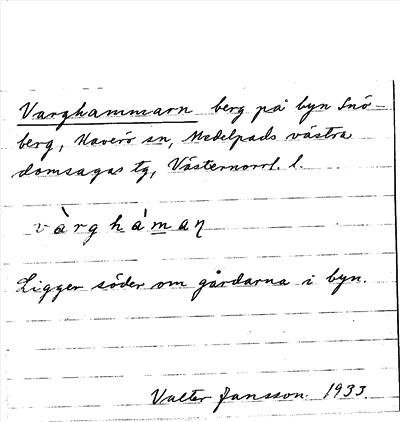 Varghammarn berg på byn Snö-
berg, Haverö sn, Medelpads västra
domsagas tg, Västernorrl. l.
vàrgháman
Ligger söder om gårdarna i byn.
Valter Jansson. 1933.